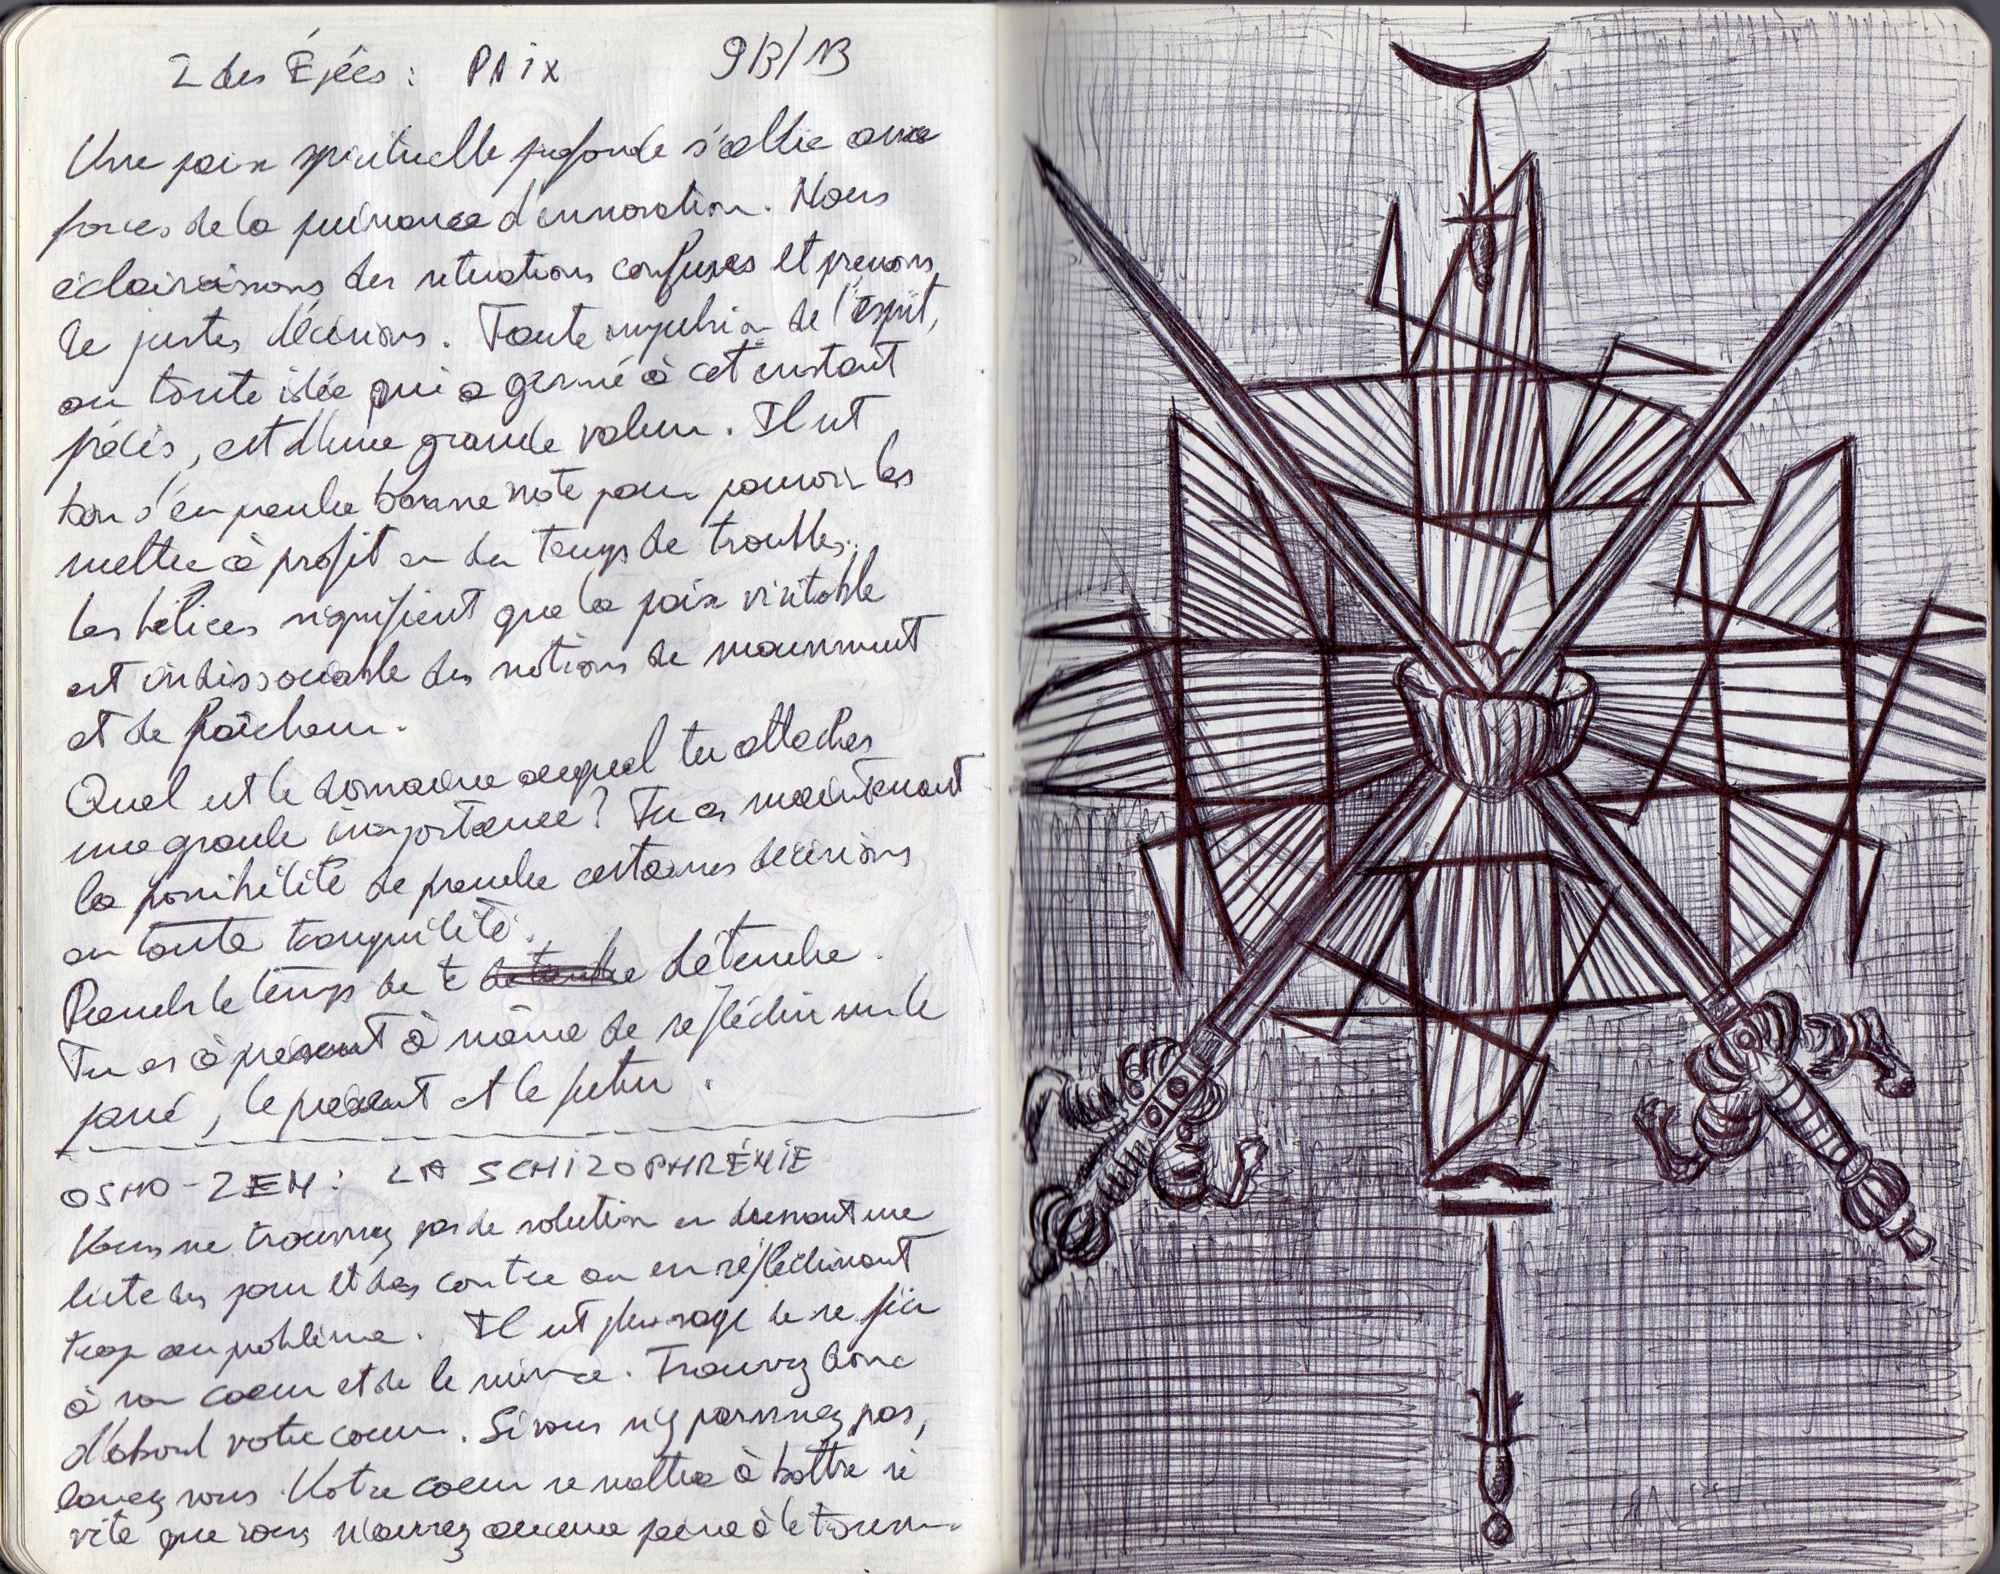 2 des Épées : PAIX 9/3/13
Une paix spirituelle profonde s'allie aux
forces de la puissance d'innovation. Nous
éclaircissons des situations confuses et prenons
de justes décisions. Toute impulsion de l'esprit,
ou toute idée qui a germé à cet instant
précis, est d'une grande valeur. Il est
bon d'en prendre bonne note pour pouvoir les
mettre à profit en des temps de troubles.
Les hélices signifient que la paix véritable
est indissociable des notions de mouvement
et de fraîcheur.
Quel est le domaine auquel tu attaches
une grande importance? Tu as maintenant
la possibilité de prendre certaines décisions
en toute tranquilité.
Prends le temps de te détendre.
Tu es à présent à même de réfléchir sur le
passé, le présent et le futur.
OSHO-ZEN: LA SCHIZOPHRÉNIE
Vous ne trouverez pas de solution en dressant une
liste des pour et des contre ou en réfléchissant
trop au problème. Il est plus sage de se fier
à son coeur et de le suivre. Trouvez donc
d'abord votre coeur. Si vous n'y parvenez pas,
lancez vous. Votre coeur se mettra à battre si
vite que vous n'aurez aucune peine à le trouver.